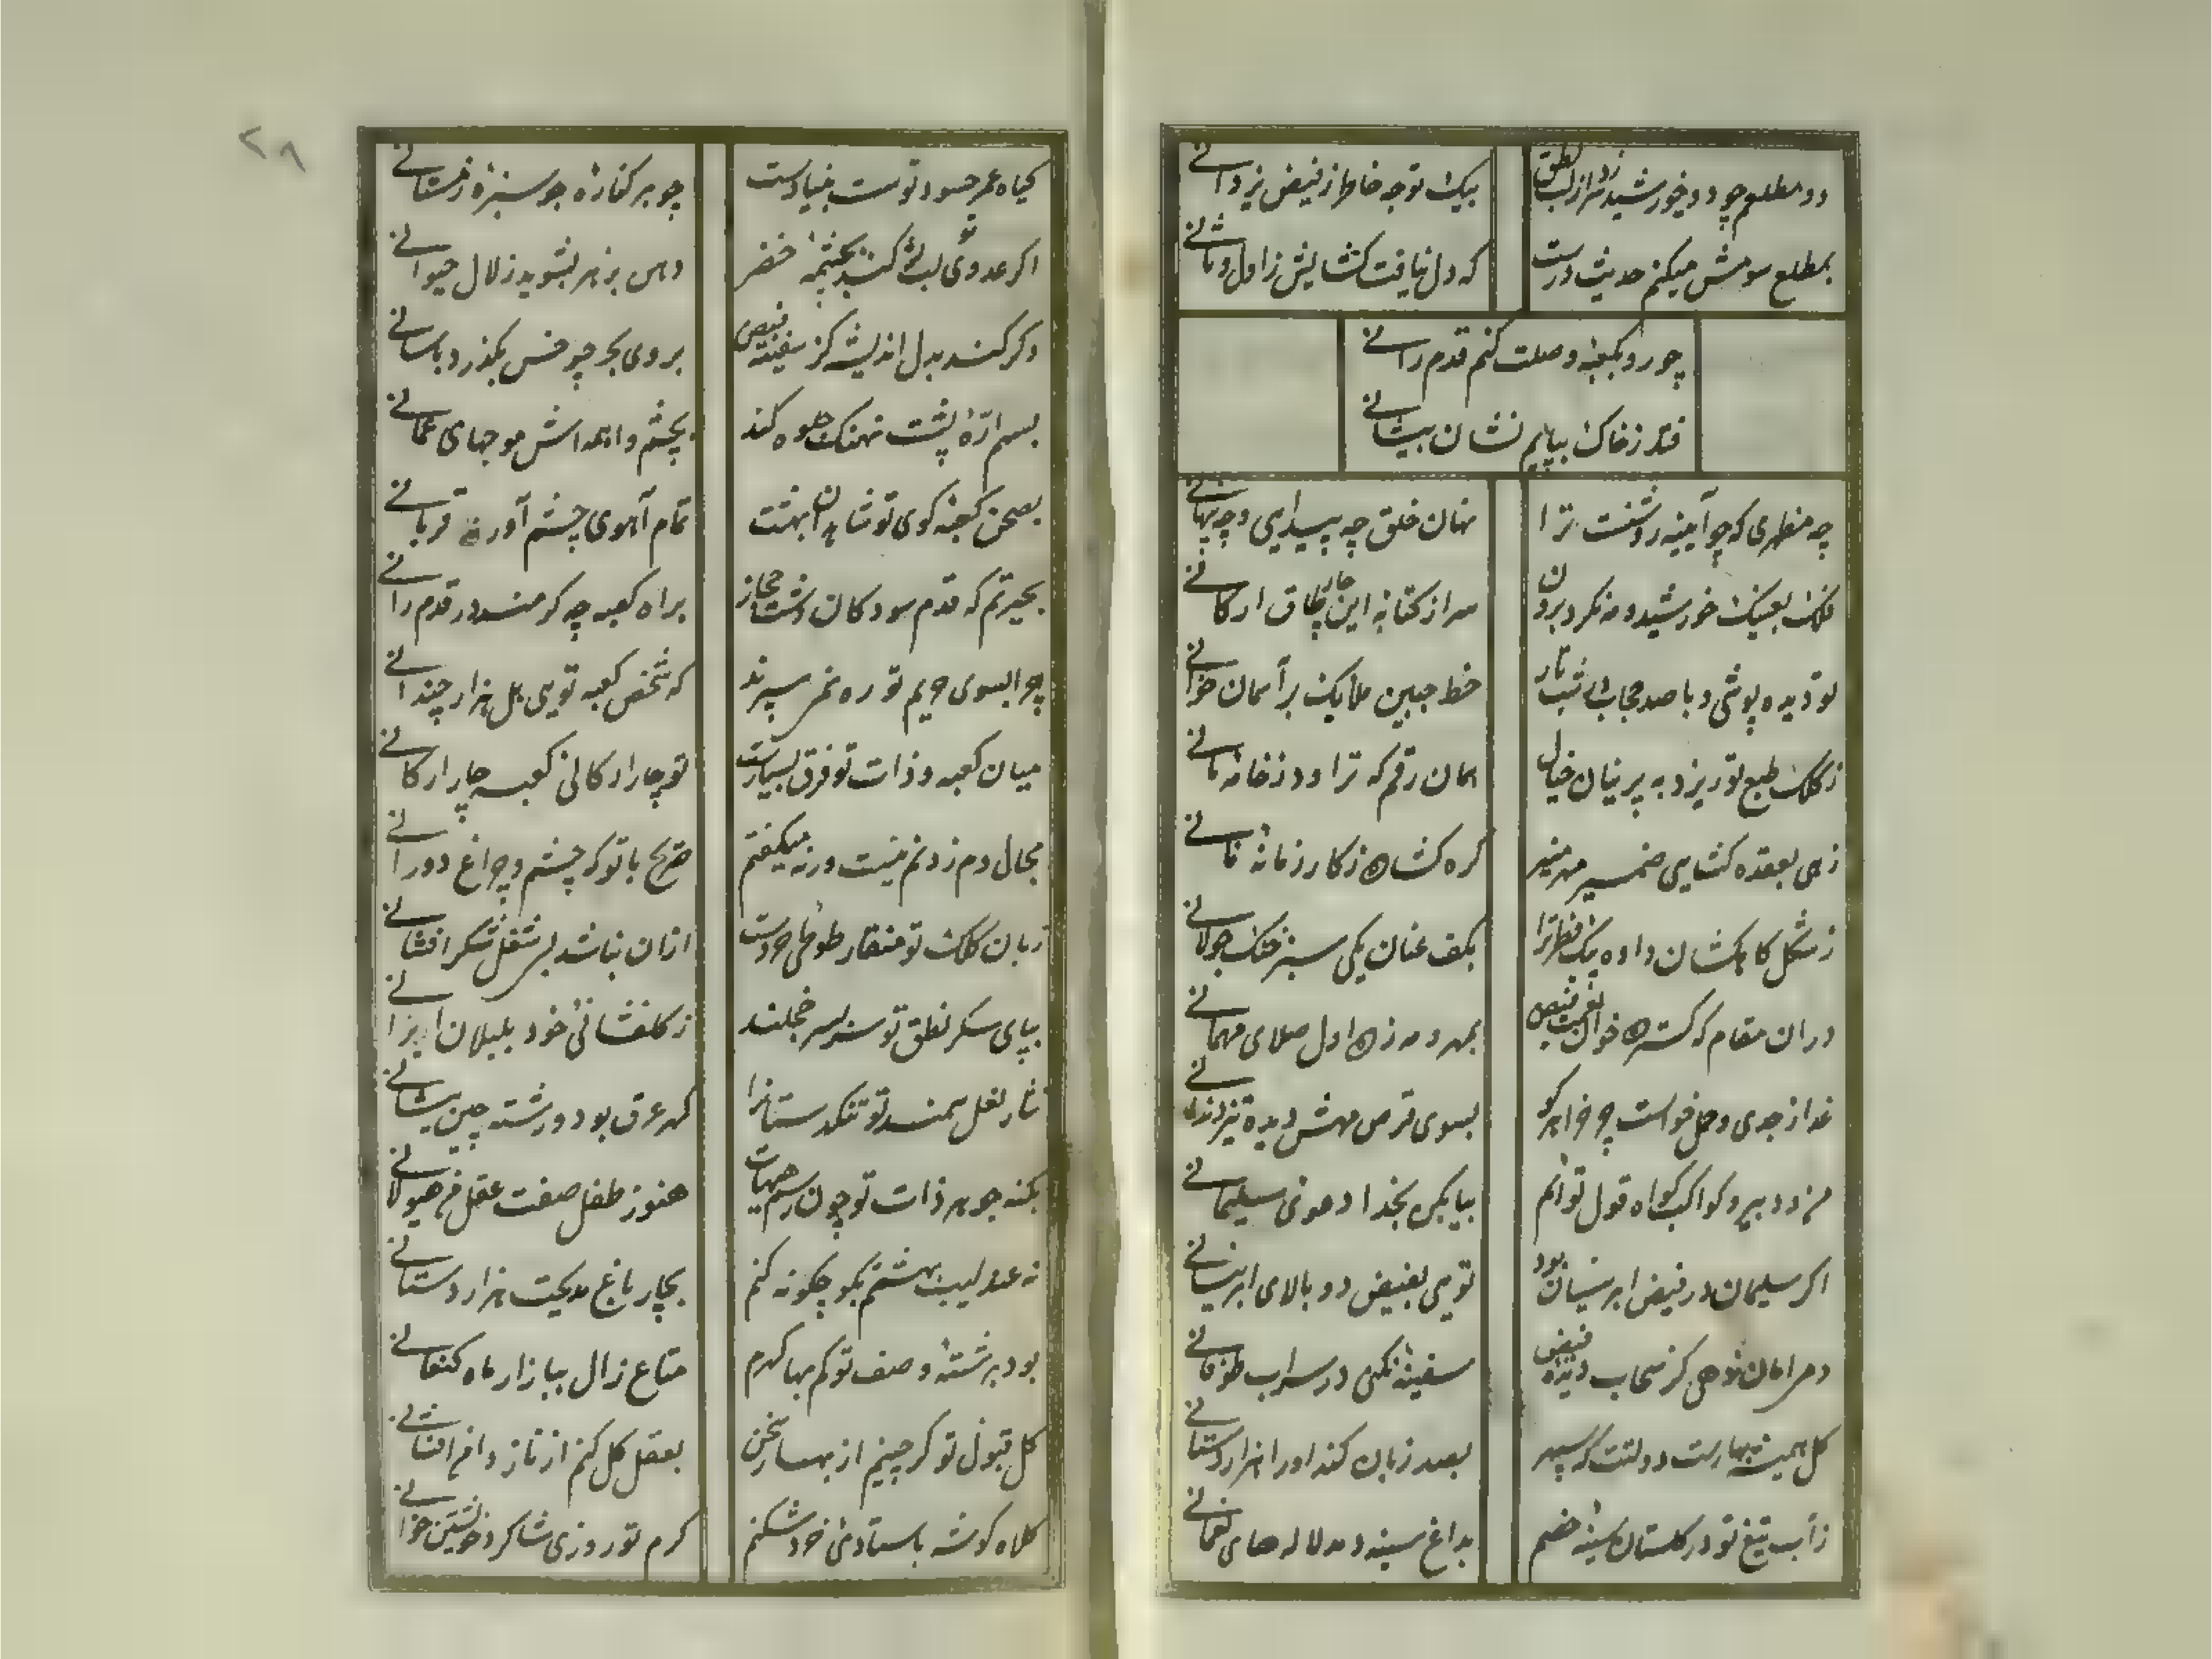 دو مطلعم چو دو خورشید زد سر از لب نطق
بیک توجه خاطر ز فیض یزدانے
بمطلع سومش میکنم حدیث درست
که دل نیافت کشایش ز اول و ثانے
چو رو بکعبهٔ وصلت کنم قدم رانے
فتد ز خاک بپایم نشان پیشانے
چه منظری که چو آیینه روشنست ترا
نهان خلق چه پیدایی و چه پنهانے
فلک بعینک خورشید و مه نکرد برون
سر از کتابه این چار طاق ارکانے
تو دیده پوشی و با صد حجاب در شب تار
خط جبین ملایک بر آسمان خوانے
ز کلک طبع تو ریزد به پرنیان خیال
همان رقم که تراود ز خامهٔ مانے
زهی بعقده کشایی ضمیر مهر منیر
کره کشاده ز کار زمانهٔ فانے
ز شکل کاهکشان داده پیک نظم ترا
بکف عنان یکی سبز خنک جولانے
دران مقام که کسترده خوان نعمت فیض
بمهر و مه زده اول صلای مهمانے
غذا ز جدی و حمل خواست چو خواهر کو
بسوی قرص مهش دیده تیز دندانے
منم دبیر و کواکب کواه قول توانم
بیا بکن بخدا دعوی سلیمانے
اکر سلیمان در فیض ابر نیسان بود
تویی بفیض دو بالای ابر نیسانے
دهر امان نوحی کز سحاب دیدهٔ فیض
سفینهٔ نکهی در سراب طوفانے
کل همیشه بهارست دولتت که سپهر
بصد زبان کند او را هزاردستانے
ز آب تیغ تو در کلستان سینهٔ خصم
بداغ سینه دمد لاله های نعمانے
کیاه عمر حسود تو سست بنیادست
چو بر کنارهٔ جو سبزهٔ زمستانے
اکر عدوی تو لب تر کند بچشمهٔ خضر
دهن بزهر بشوید ز لال حیوانے
وکر کند بدل اندیشه کز سفینه فیض
بروی بحر چو خس بکذرد باسانے
بسم ارهٔ پشت نهنک جلوه کند
بچشم واهمه اش موجهای عمانے
بصحن کعبهٔ کوی تو شاهدان بهشت
تمام آهوی چشم آورده قربانے
بحیرتم که قدم سودکان دشت حجاز
براه کعبه چه کر منند در قدم رانے
چرا بسوی حریم تو ره نمی سپرند
که شخص کعبه تویی بل هزار چندانے
میان کعبه و ذات تو فرق بسیارست
تو چار ارکانی کعبه چار ارکانے
مجال دم زدنم نیست ورنه میکفتم
صریح با تو که چشم و چراغ دورانے
زبان کلک تو منقار طوطی خودست
ازان نباشد بی شغل شکر افشانے
بپای سکر نطق تو سر بسر خجلند
ز کلفشانی خود بلبلان ایرانے
نثار لعل سمند تو تنکدستانرا
کهر عرق بود و رشته چین پیشانے
بکنه جوهر ذات تو چون رسم هیهات
هنوز طفل صفت عقل من هیولانے
نه عندلیب بهشتم بکو چکونه کنم
بچار باغ مدیحت هزاردستانے
بود برشتهٔ وصف تو کم بها کهرم
متاع زال ببازار ماه کنعانے
کل قبول تو کر چینم از بهار سخن
بعقل کل کنم از ناز دامن افشانے
کلاه کوشه باستادی خود شکنم
کرم تو روزی شاکرد خویشتن خوانے
۲۸